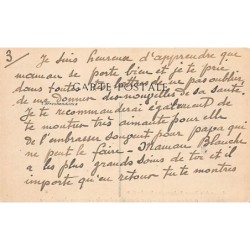 3/ Je suis heureux d'apprendre que
maman se porte bien et je te prie
CARTE POSTALE
dans toutes tes lettres de ne pas oublier
de me donner des nouvelles de sa santé.
Je te recommanderai également de
te montrer très aimante pour elle
de l'embrasser souvent pour papa qui
ne peut le faire - Maman Blanche
a les plus grands soins de toi et il
importe qu'en retour tu te montres